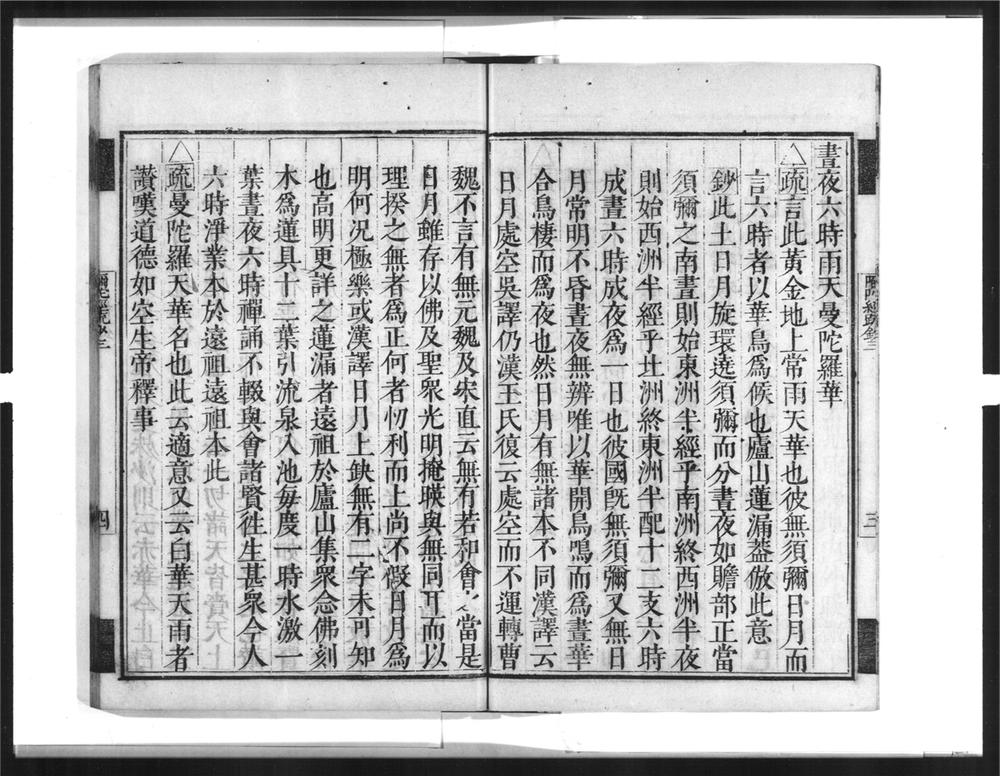 晝夜六時雨天曼陀羅華
△疏言此黃金地上常雨天華也彼無須彌日月而
言六時者以華鳥為候也廬山蓮漏葢倣此意
鈔此土日月旋環遶須彌而分晝夜如贍部正當
須彌之南晝則始東洲半經乎南洲終西洲半夜
則始西洲半經乎北洲終東洲半配十二支六時
成晝六時成夜為一日也彼國旣無須彌又無日
月常明不昏晝夜無辨唯以華開鳥鳴而為晝華
合鳥棲而為夜也然日月有無諸本不同漢譯云
日月處空吳譯仍漢王氏復云處空而不運轉曹
魏不言有無元魏及宋直云無有若和會之當是
日月雖存以佛及聖衆光明掩暎與無同耳而以
理揆之無者為正何者忉利而上尚不假日月為
明何況極樂或漢譯日月上鈌無有二字未可知
也高明更詳之蓮漏者遠祖於廬山集衆念佛刻
木為蓮具十二葉引流泉入池每度一時水激一
葉晝夜六時禪誦不輟與會諸賢徃生甚衆今人
六時淨業本於遠祖遠祖本此
△疏曼陀羅天華名也此云適意又云白華天雨者
讚嘆道德如空生帝釋事
三
四